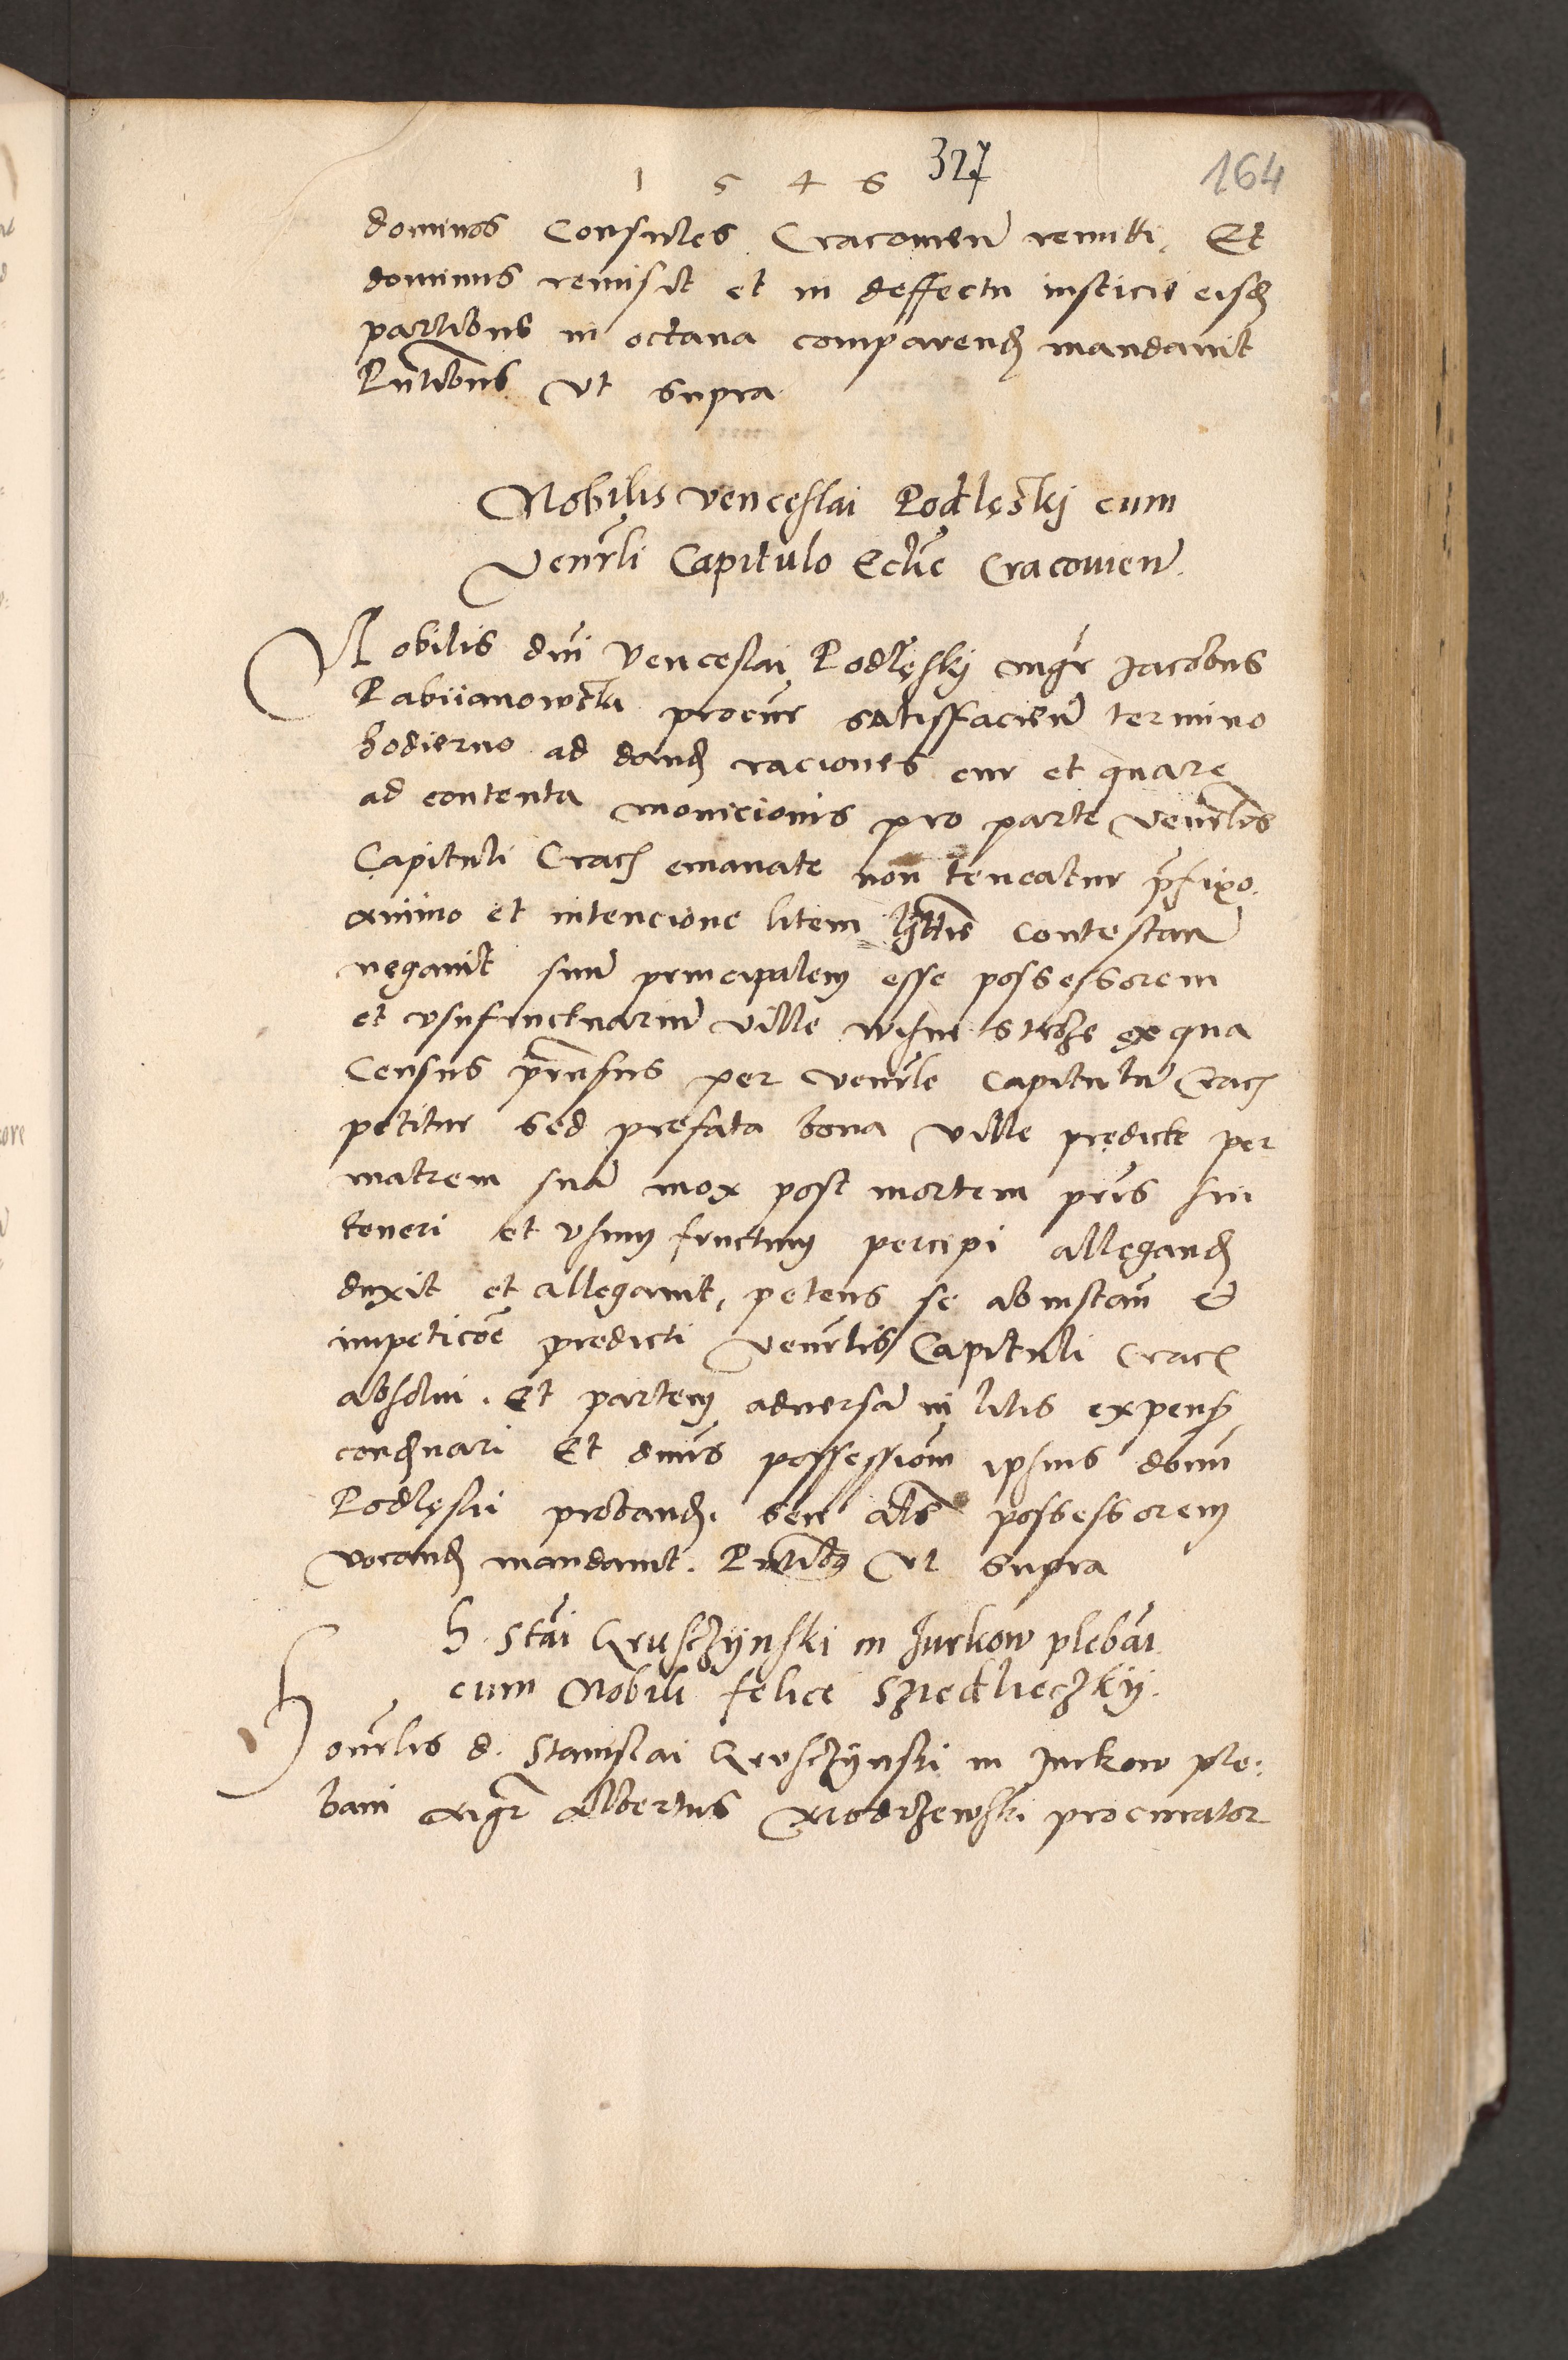 1 5 4 6 327 164
dominos Consules Cracovien̄ remitti. Et
dominus remisit et in deffectu iusticie eisđ
partibus in octava comparenđ mandavit
Pn̄tibus ut supra
Nobilis Venceslai Podlęskj cum
Venr̄li Capitulo Eccl̄ie Cracovien̄.
Nobilis dn̄i Venceslai Podlęskj mgr̄ Jacobus
Pabiianowski procur̄ satisfacien̄ termino
hodierno ad danđ raciones cur et quare
ad contenta monicionis pro parte venr̄lis
Capituli Crac̄ emanate non teneatur p̄fixo.
animo et intencione litem contestan̄
negavit suū principalem esse possessorem
et usufructuariū ville ex qua
Census per venr̄le capitulū Crac̄
petitur sed prefata bona ville predicte per
matrem suā mox post mortem pr̄is sui
teneri et usum fructum percipi alleganđ
duxit et allegavit, petens se ab instan̄ &
impeticōe predicti venr̄lis Capituli Crac̄
absolvi. Et partem adversā in litis expens̄
conđnari Et dn̄us possessiōm ipsius don̄m
Podlęski probanđ. seu al̄s possessorem
vocanđ mandavit. Pn̄tibus ut supra
H. Stāi Gruschÿnski in Jurkow plebān
cum Nobili felice Sziedlieczkÿ.
Honr̄lis d. Stanislai Gruschÿnski in Jurkow ple:
bani mgr̄ Albertus Modrzewski procurator